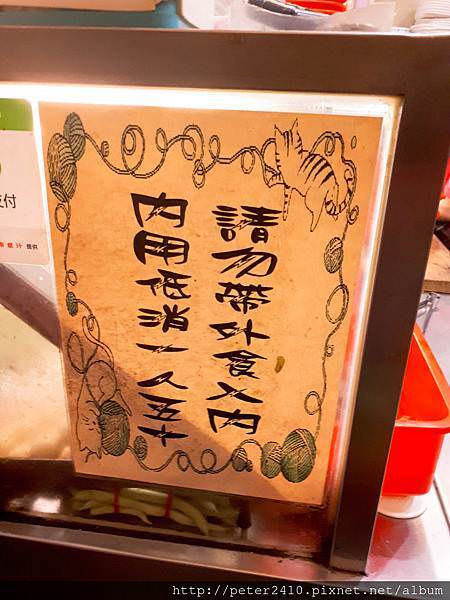 請勿帶外食入內
內用低消一人五十
支付
提供
http://peter2410.pixnet.net/album